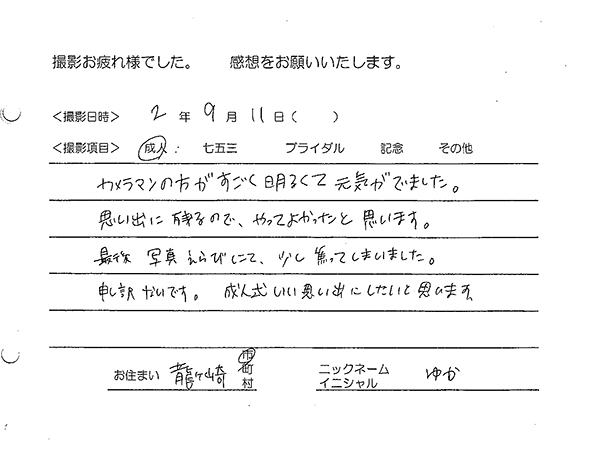 撮影お疲れ様でした。 感想をお願いいたします。
<撮影日時> 2 年 9 月 11 日 ( )
<撮影項目> 成人 : 七五三 ブライダル 記念 その他
カメラマンの方がすごく明るくて 元気がでました。
思い出に 残るので、やってよかったと 思います。
最後 写真 えらびにて、少し 焦ってしまいました。
申し訳ないです。 成人式 いい思い出にしたいと思います
お住まい 龍ヶ崎 市町村 ニックネーム イニシャル ゆか